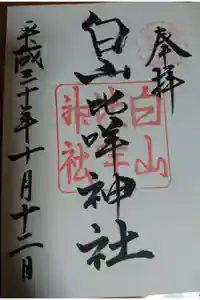 奉拝
白山比咩神社
白山
比咩
神社
平成三十年十月十二日